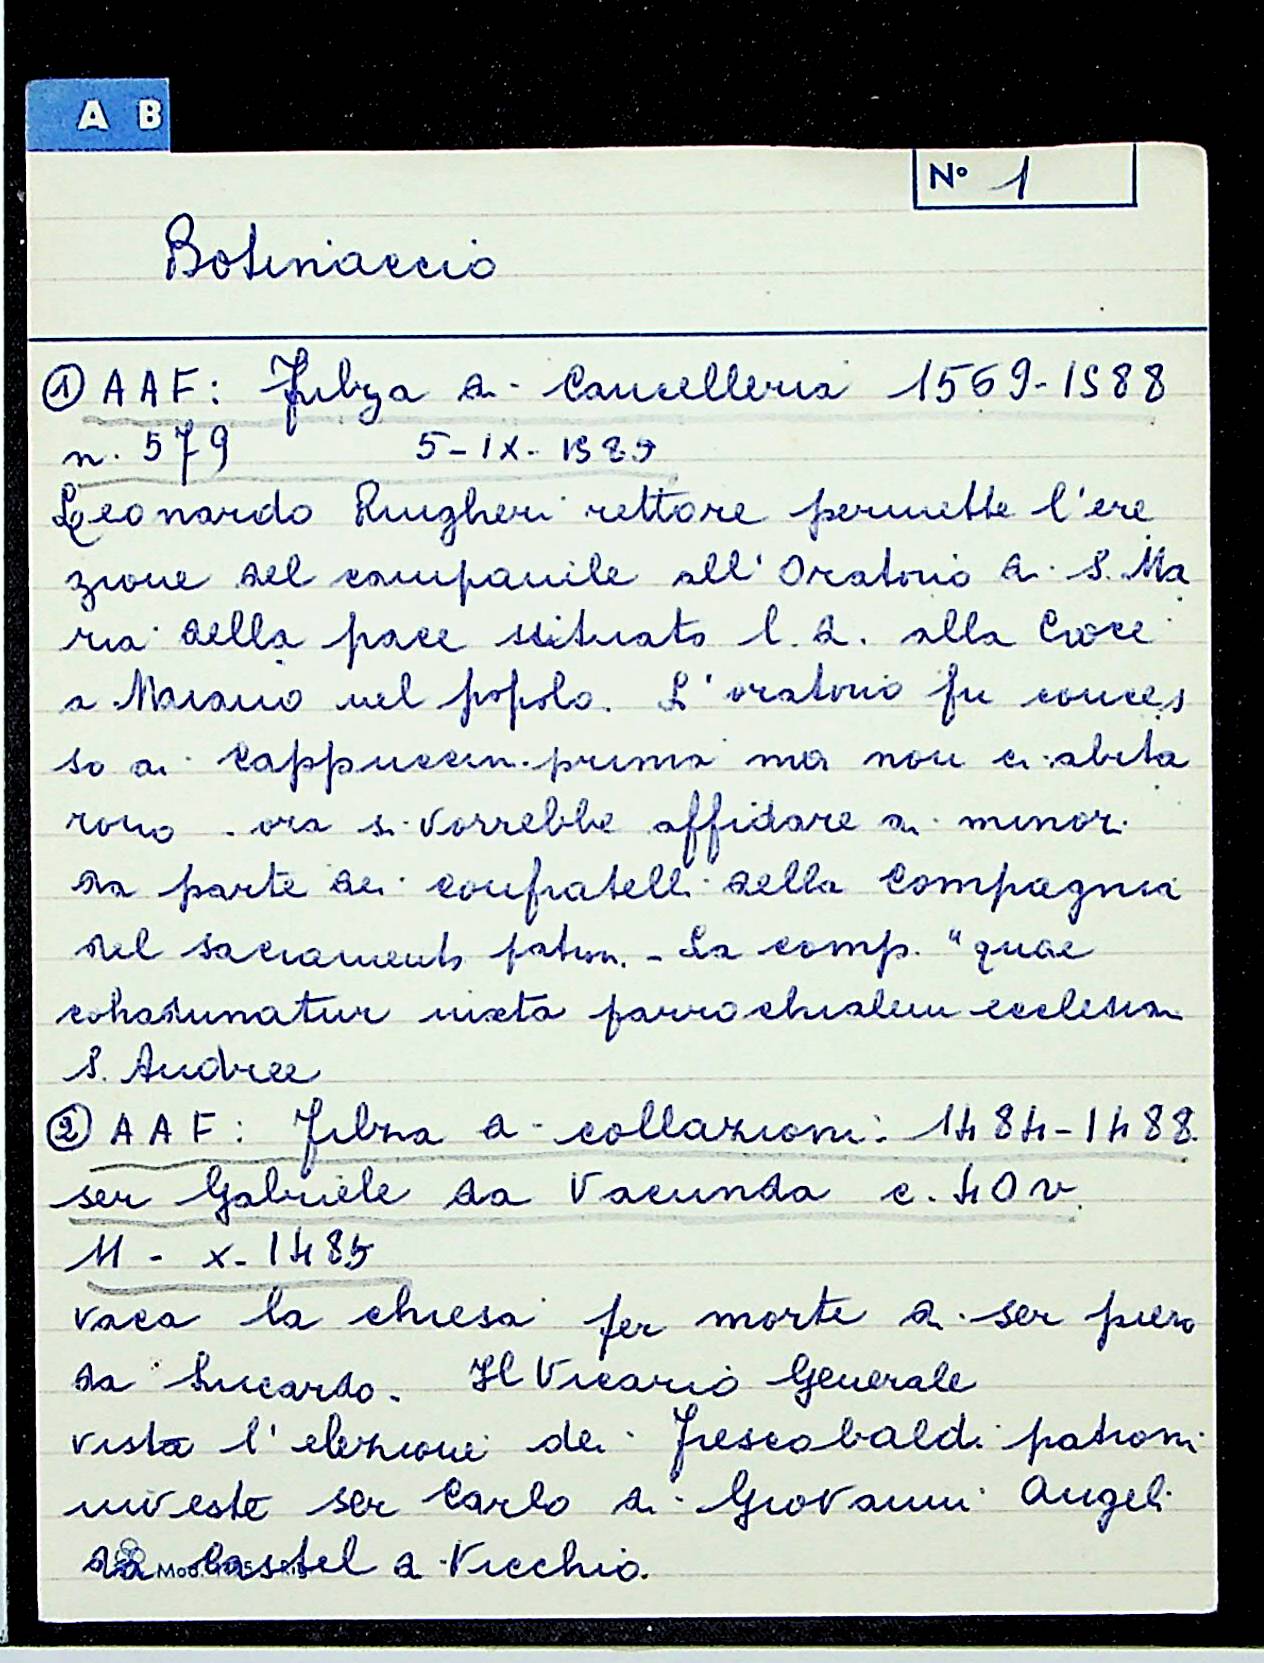 A B
N° 1
Botinaccio
① AAF: Filza di Cancelleria 1569-1588
n. 579 5-IX-1585
Leonardo Rugheri rettore permette l'ere
zione del campanile all'Oratorio di S. Ma
ria della pace situato l. d. alla Croce
a Maiano nel popolo. L'oratorio fu conces
so ai cappuccini prima ma non ci abita
rono. ora si vorrebbe affidare ai minori
da parte dei confratelli della Compagnia
del sacramento patron. - La comp. "quae
cohadunatur iuxta parrochialem ecclesiam
S. Andree
② AAF: Filza di collazioni: 1484-1488.
ser Gabriele da Vacunda c. 40v
11 - X - 1485
vaca la chiesa per morte di ser piero
da Lucardo. Il Vicario Generale
vista l'elezione dei Frescobaldi patroni
investe ser Carlo di Giovanni Angeli
da Castel di Vicchio.